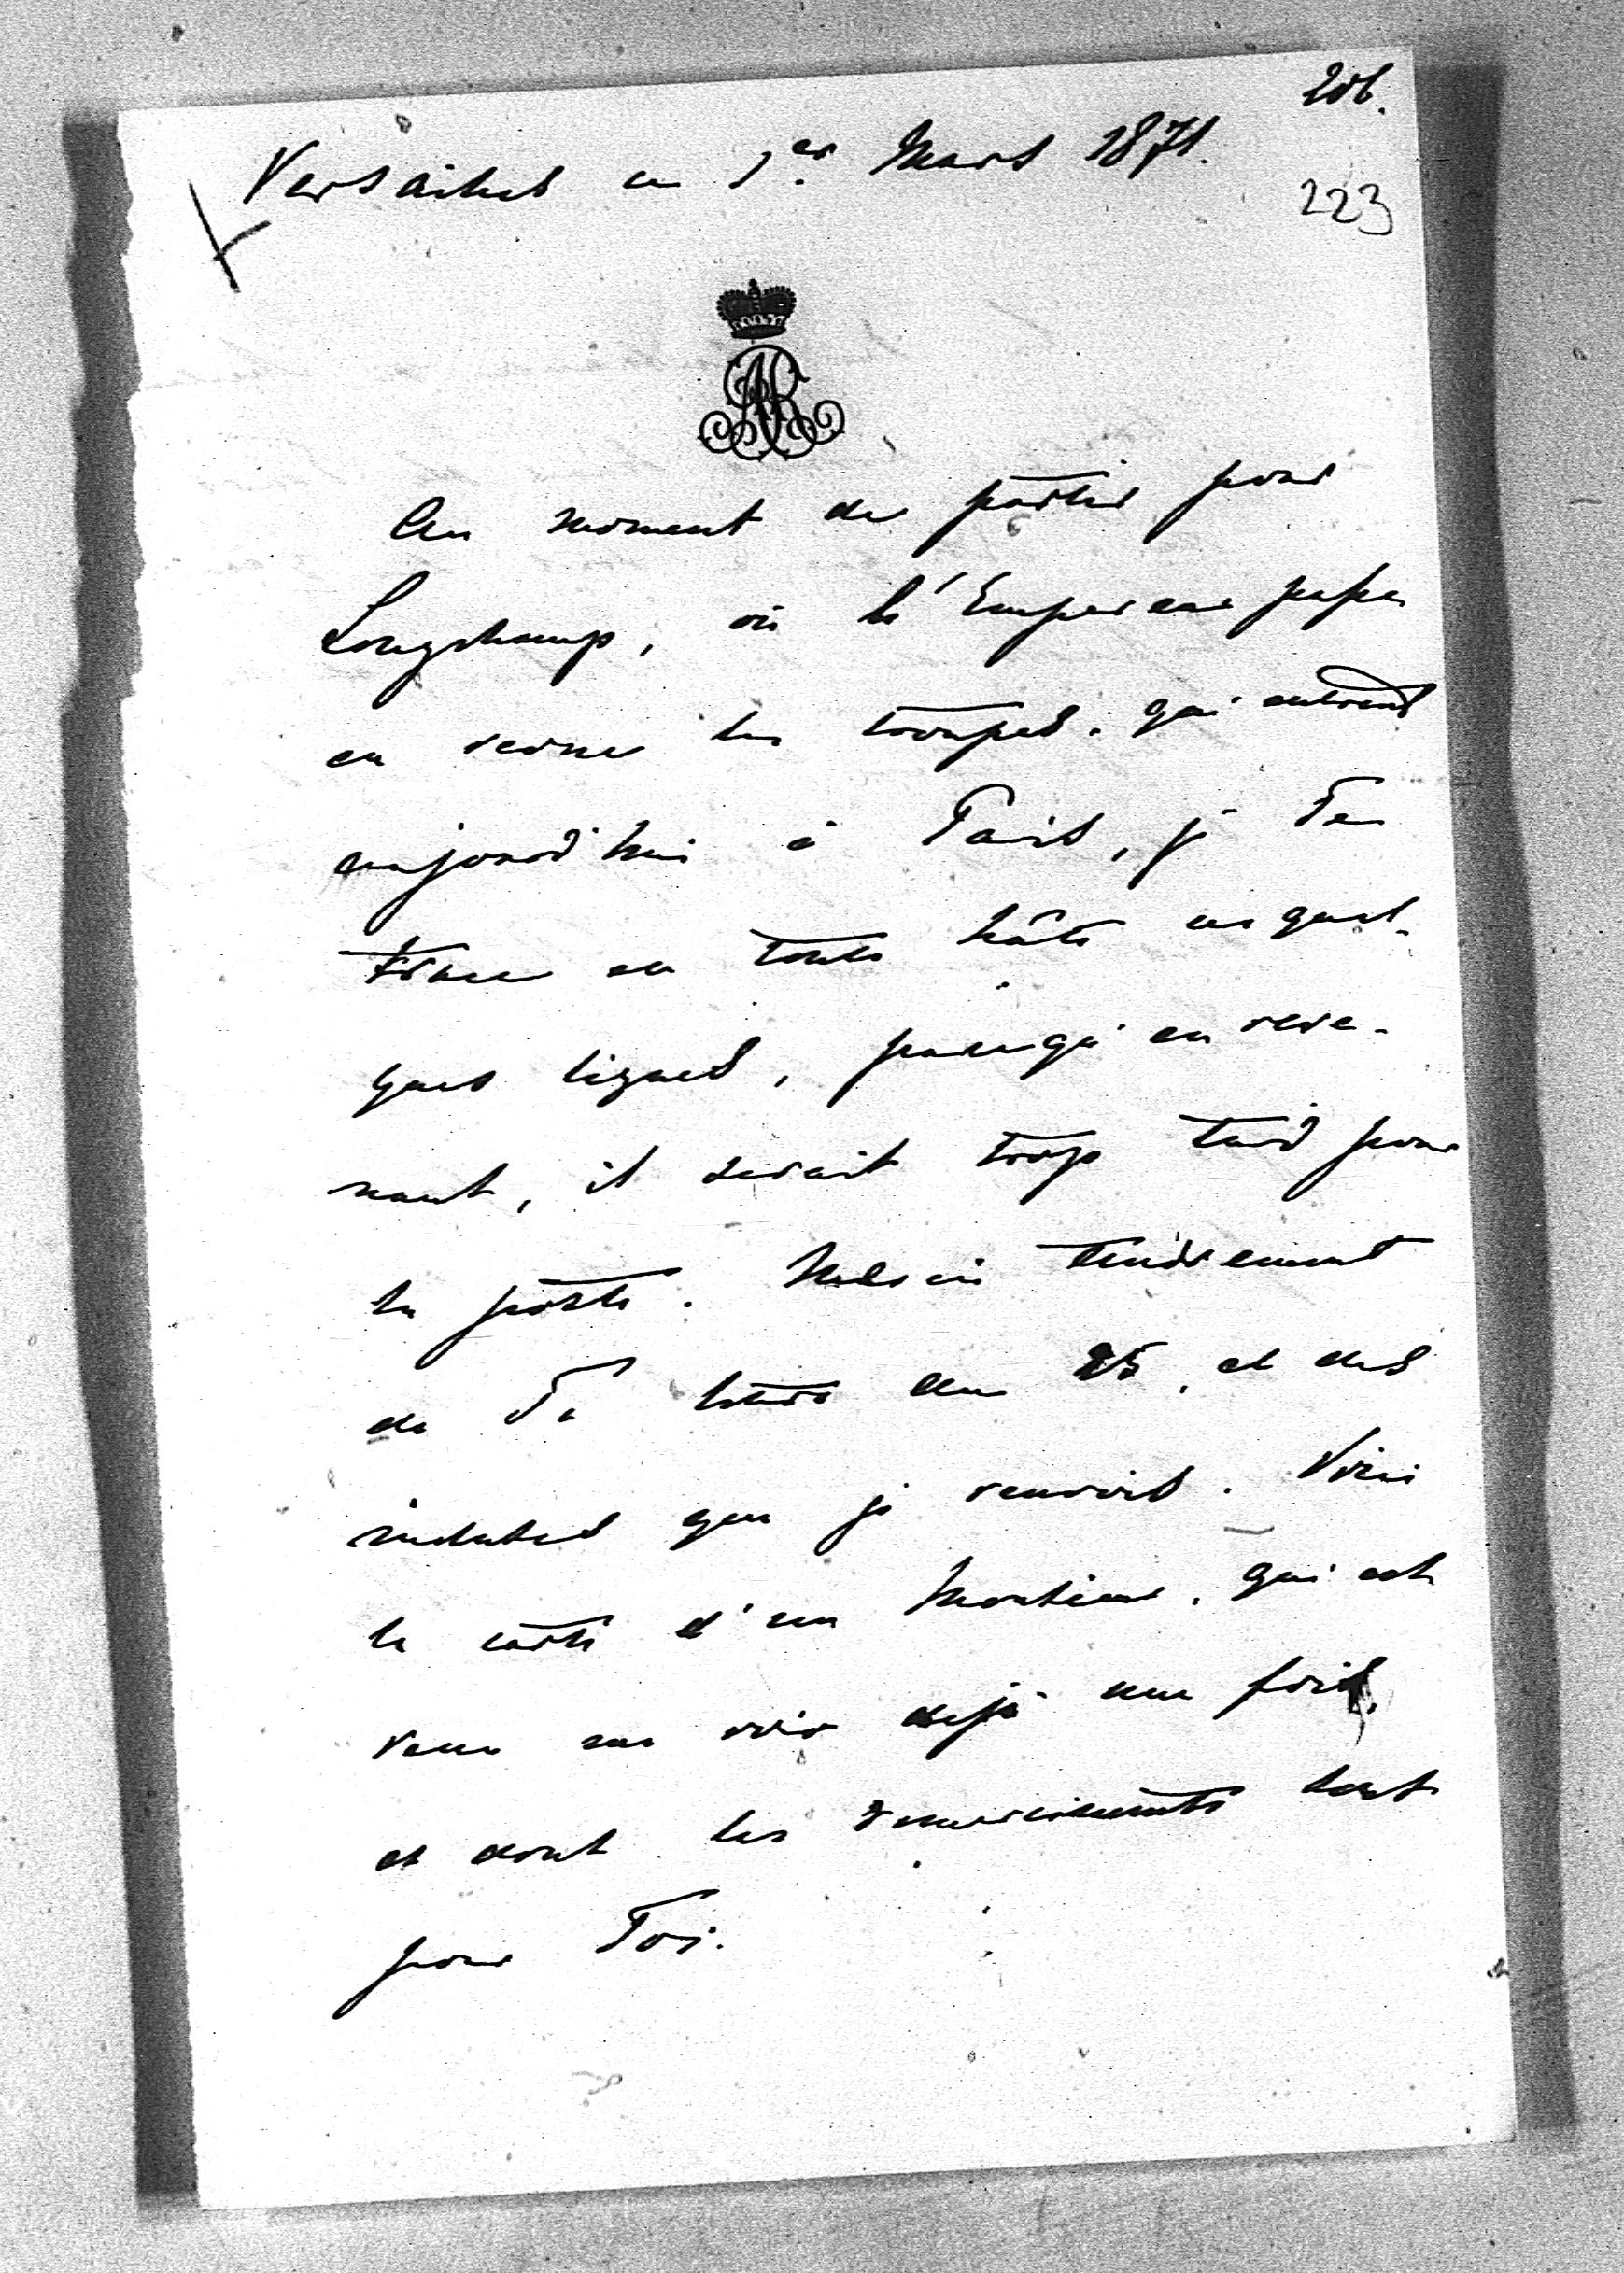 206.
Versailles ce 1er Mars 1871.
223
Au moment de partir pour
Longchamp, où l'Empereur passe
en revue les troupes, qui entrent
aujourd'hui à Paris, je Te
trace en toute hâte ces quel-
ques lignes, parcequ'en reve-
nant, il serait trop tard pour
la poste. Merci tendrement
de Ta lettre du 25, et des
incluses que je renvois. Voici
la carte d'un Monsieur, qui est
venu me voir déjà une fois,
et dont les remerciements sont
pour Toi.